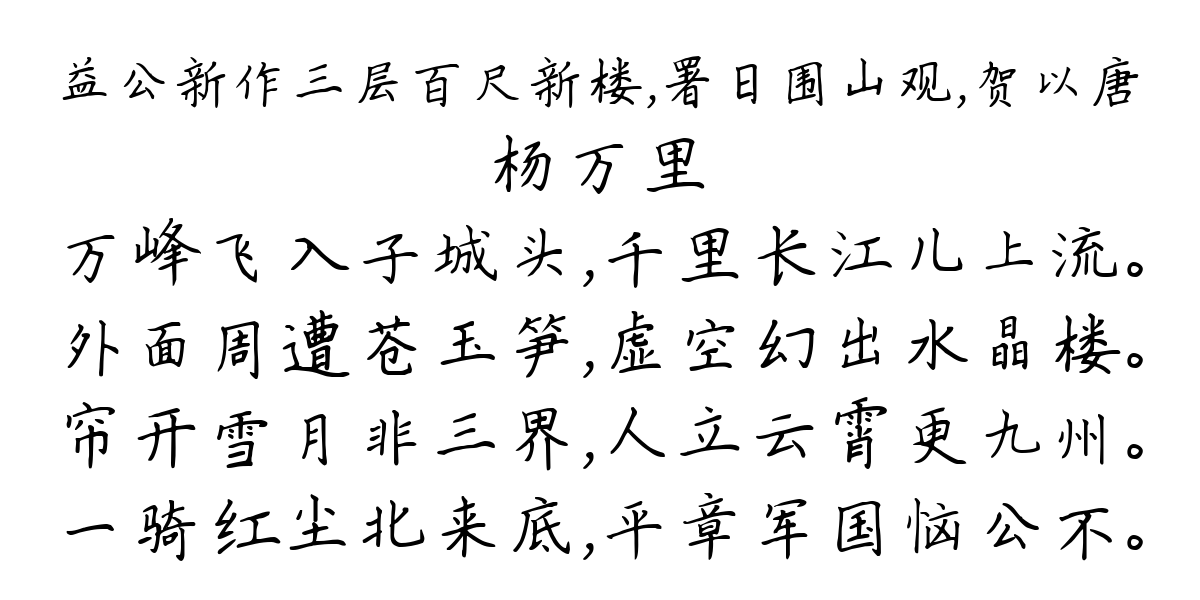 益公新作三层百尺新楼,署日围山观,贺以唐
杨万里
万峰飞入子城头,千里长江儿上流。
外面周遭苍玉笋,虚空幻出水晶楼。
帘开雪月非三界,人立云霄更九州。
一骑红尘北来底,平章军国恼公不。